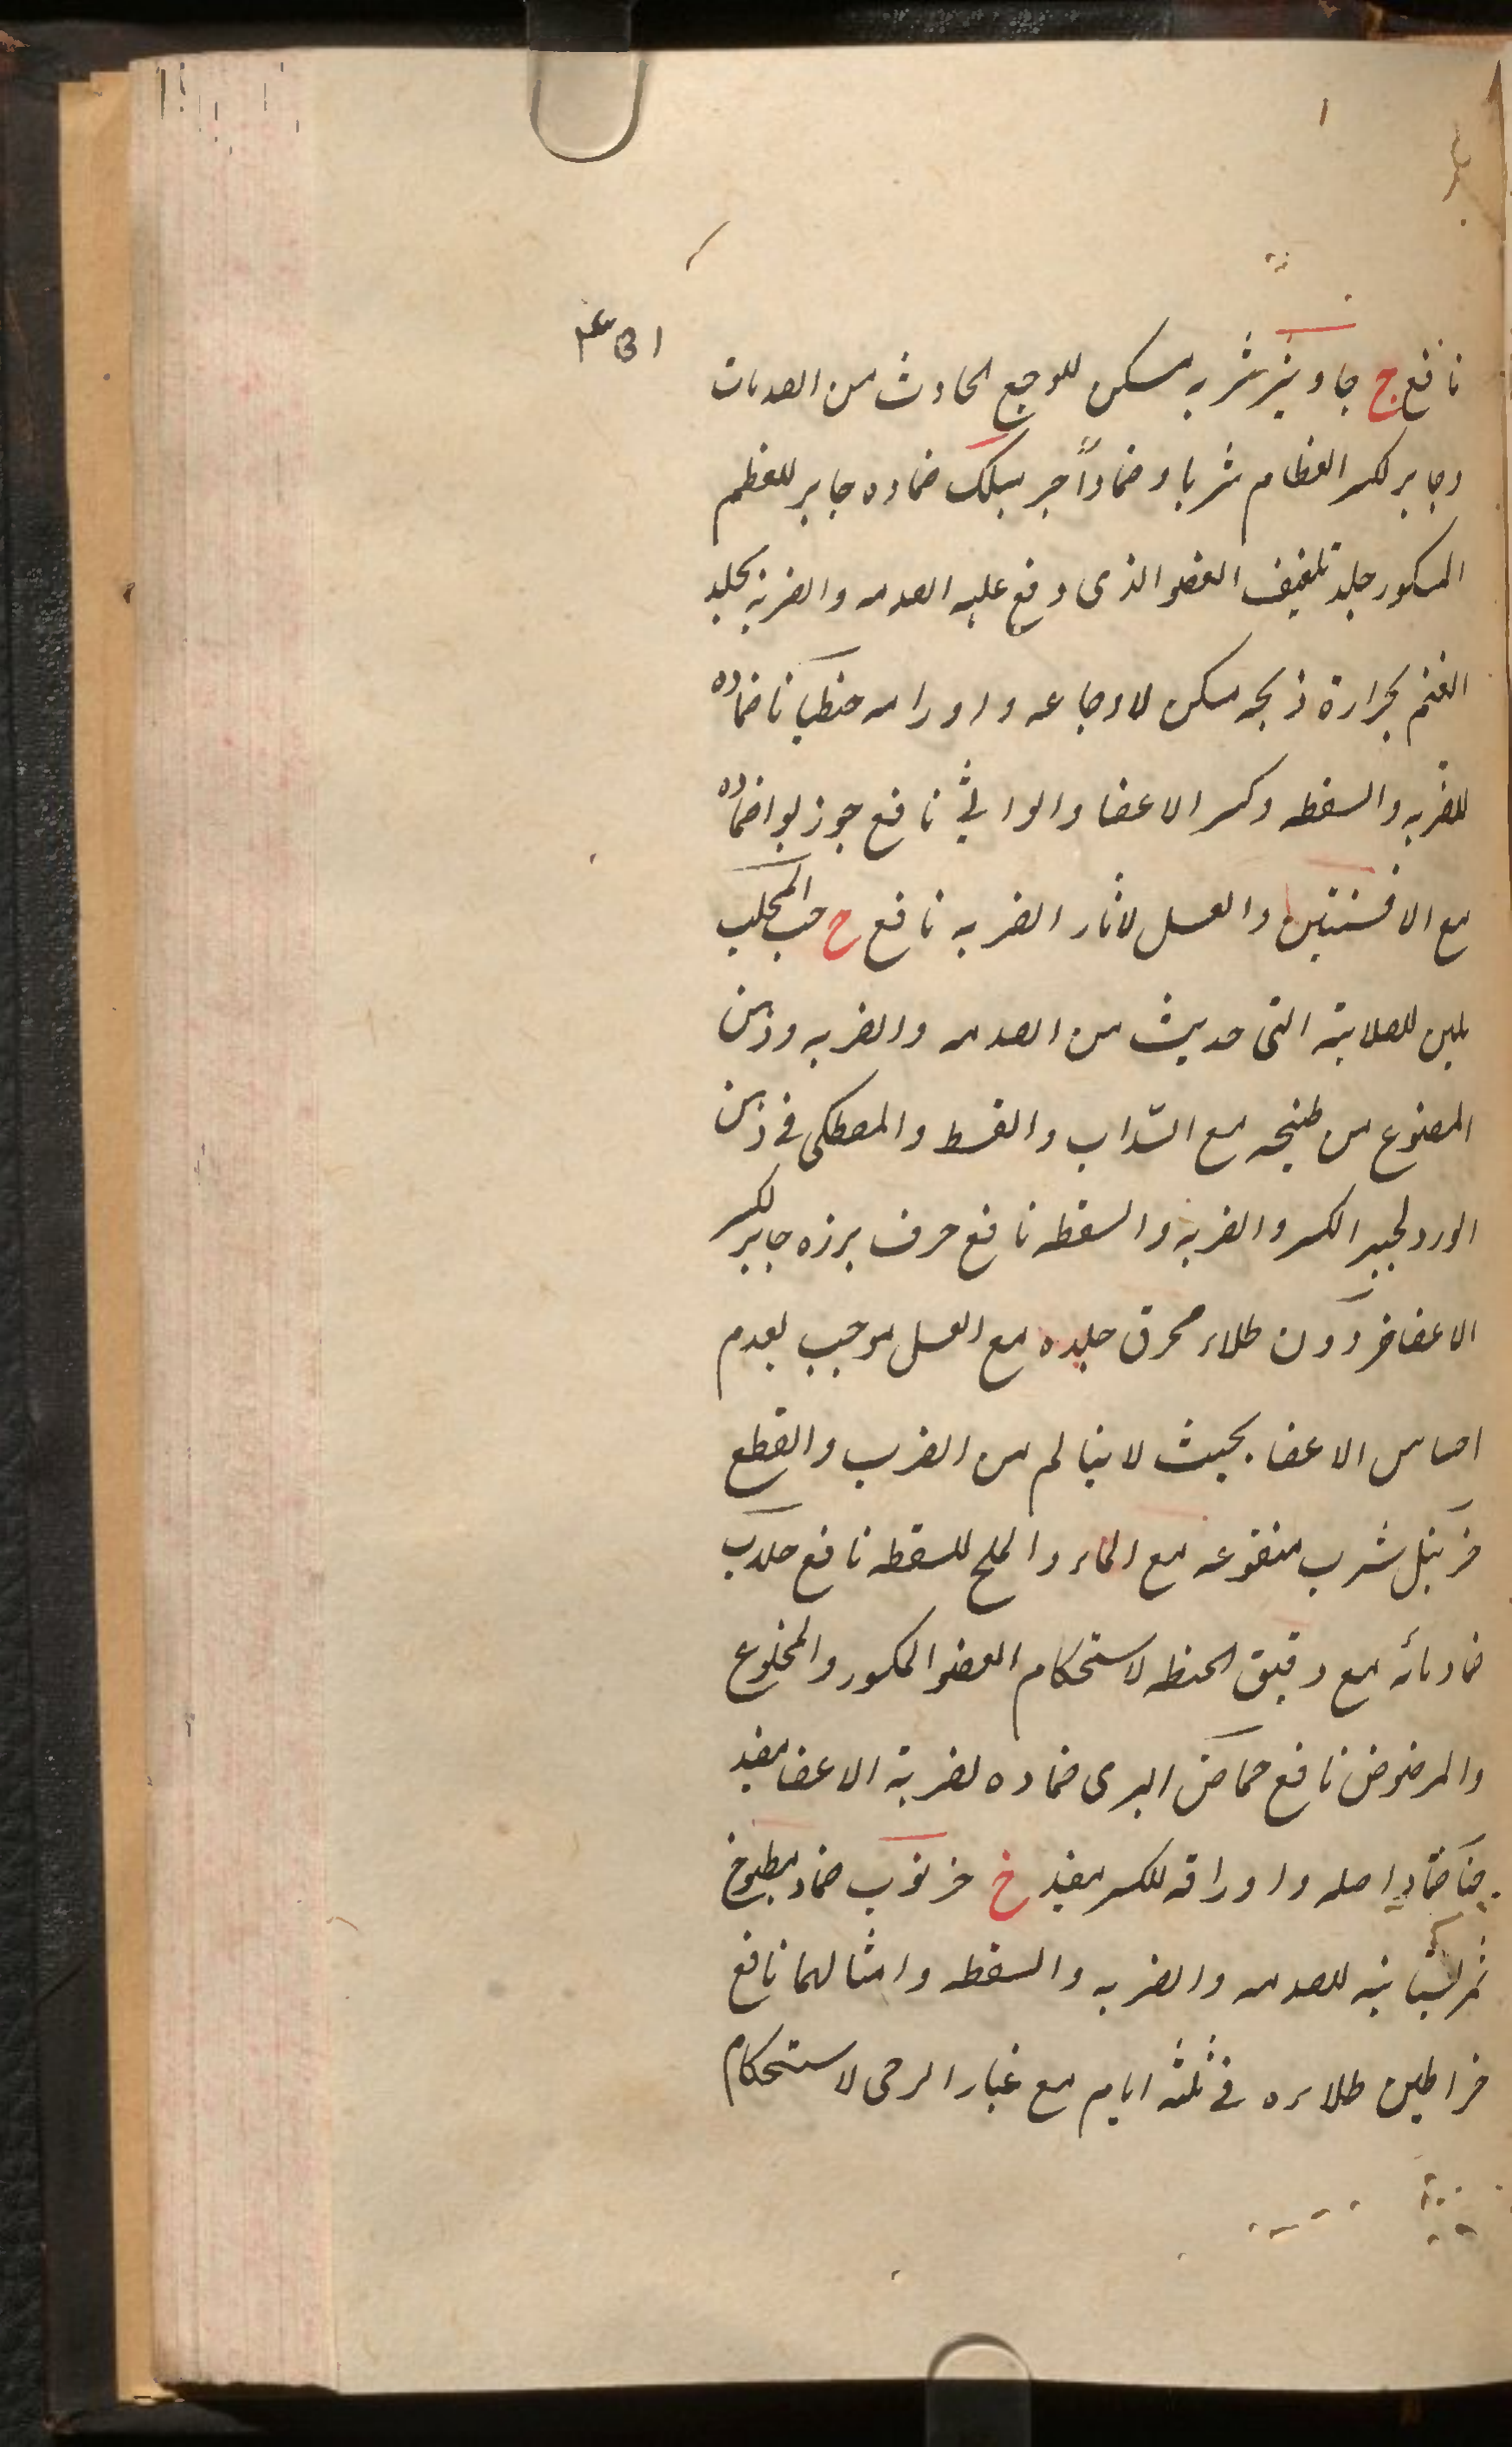 نافع ج جاوشير شربه مسكن للوجع الحادث من الصدمات
وجابر لكسر العظام شربا وضمادا ضماده جابر للعظم
المكسور جلد تلفيف العضو الذى وقع عليه الصدمه والضربة بجلد
الغنم بحرارة ذبحه مسكن لاوجاعه واورامه جنطيانا ضماده
للضربه والسقطه وكسر الاعضا والواثى نافع جوز بوا ضماده
مع الافسنتين والعسل لاثار الضربه نافع ح حب المحلب
ملين للصلابة التى حديث من الصدمه والضربه ودهن
المصنوع من طبيخه مع السداب والقسط والمصطكى فى دهن
الورد لجبر الكسر والضربة والسقطه نافع حرف بزره جابر لكسر
الاعضا حردون طلاء محرق جلده مع العسل موجب لعدم
احساس الاعضا بحيث لا يتالم من الضرب والقطع
شرب منقوعه مع الماء والملح للسقطه نافع
ضماد مائه مع دقيق الحنطه لاستحكام العضو المكسور والمخلوع
والمرضوض نافع حماض البرى ضماده لضربة الاعضا مفيد
حنا ضماد اصله واوراقه للكسر مفيد خ خرنوب ضماد مطبوخ
ثمر للصدمه والضربه والسقطه وامثالهما نافع
خراطين طلاءه فى ثلثه ايام مع غبار الرحى لاستحكام